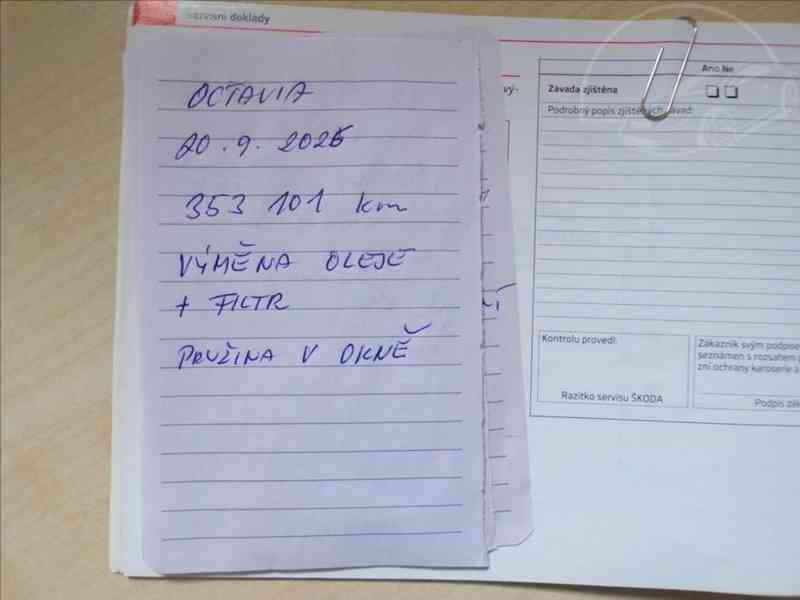 Servisní doklady
OCTAVIA
20.9.2025
353 101 km
VÝMĚNA OLEJE
+ FILTR
PRUŽINA V OKNĚ
Ano Ne
Závada zjištěna
Podrobný popis zjištěných závad:
Kontrolu provedl:
Razítko servisu ŠKODA
Zákazník svým podpise
seznámen s rozsahem
zní ochrany karoserie a
Podpis zák